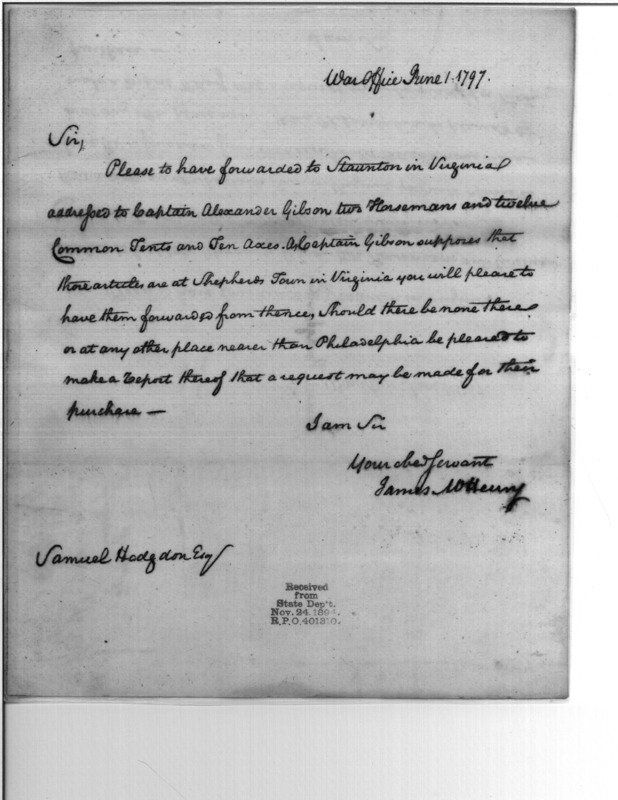 War Office June 1. 1797.
Sir,
Please to have forwarded to Staunton in Virginia
addressed to Captain Alexander Gibson two Horsemans and twelve
Common Tents and Ten Axes. As Captain Gibson supposes that
those articles are at Shepherds Town in Virginia you will please to
have them forwarded from thence, Should there be none there
or at any other place nearer than Philadelphia be pleased to
make a report thereof that a request may be made for their
purchase —
I am Sir
Your obed Servant
James McHenry
Samuel Hodgdon Esq
Received
from
State Dep't.
Nov. 24, 189
R.P.O. 401310.